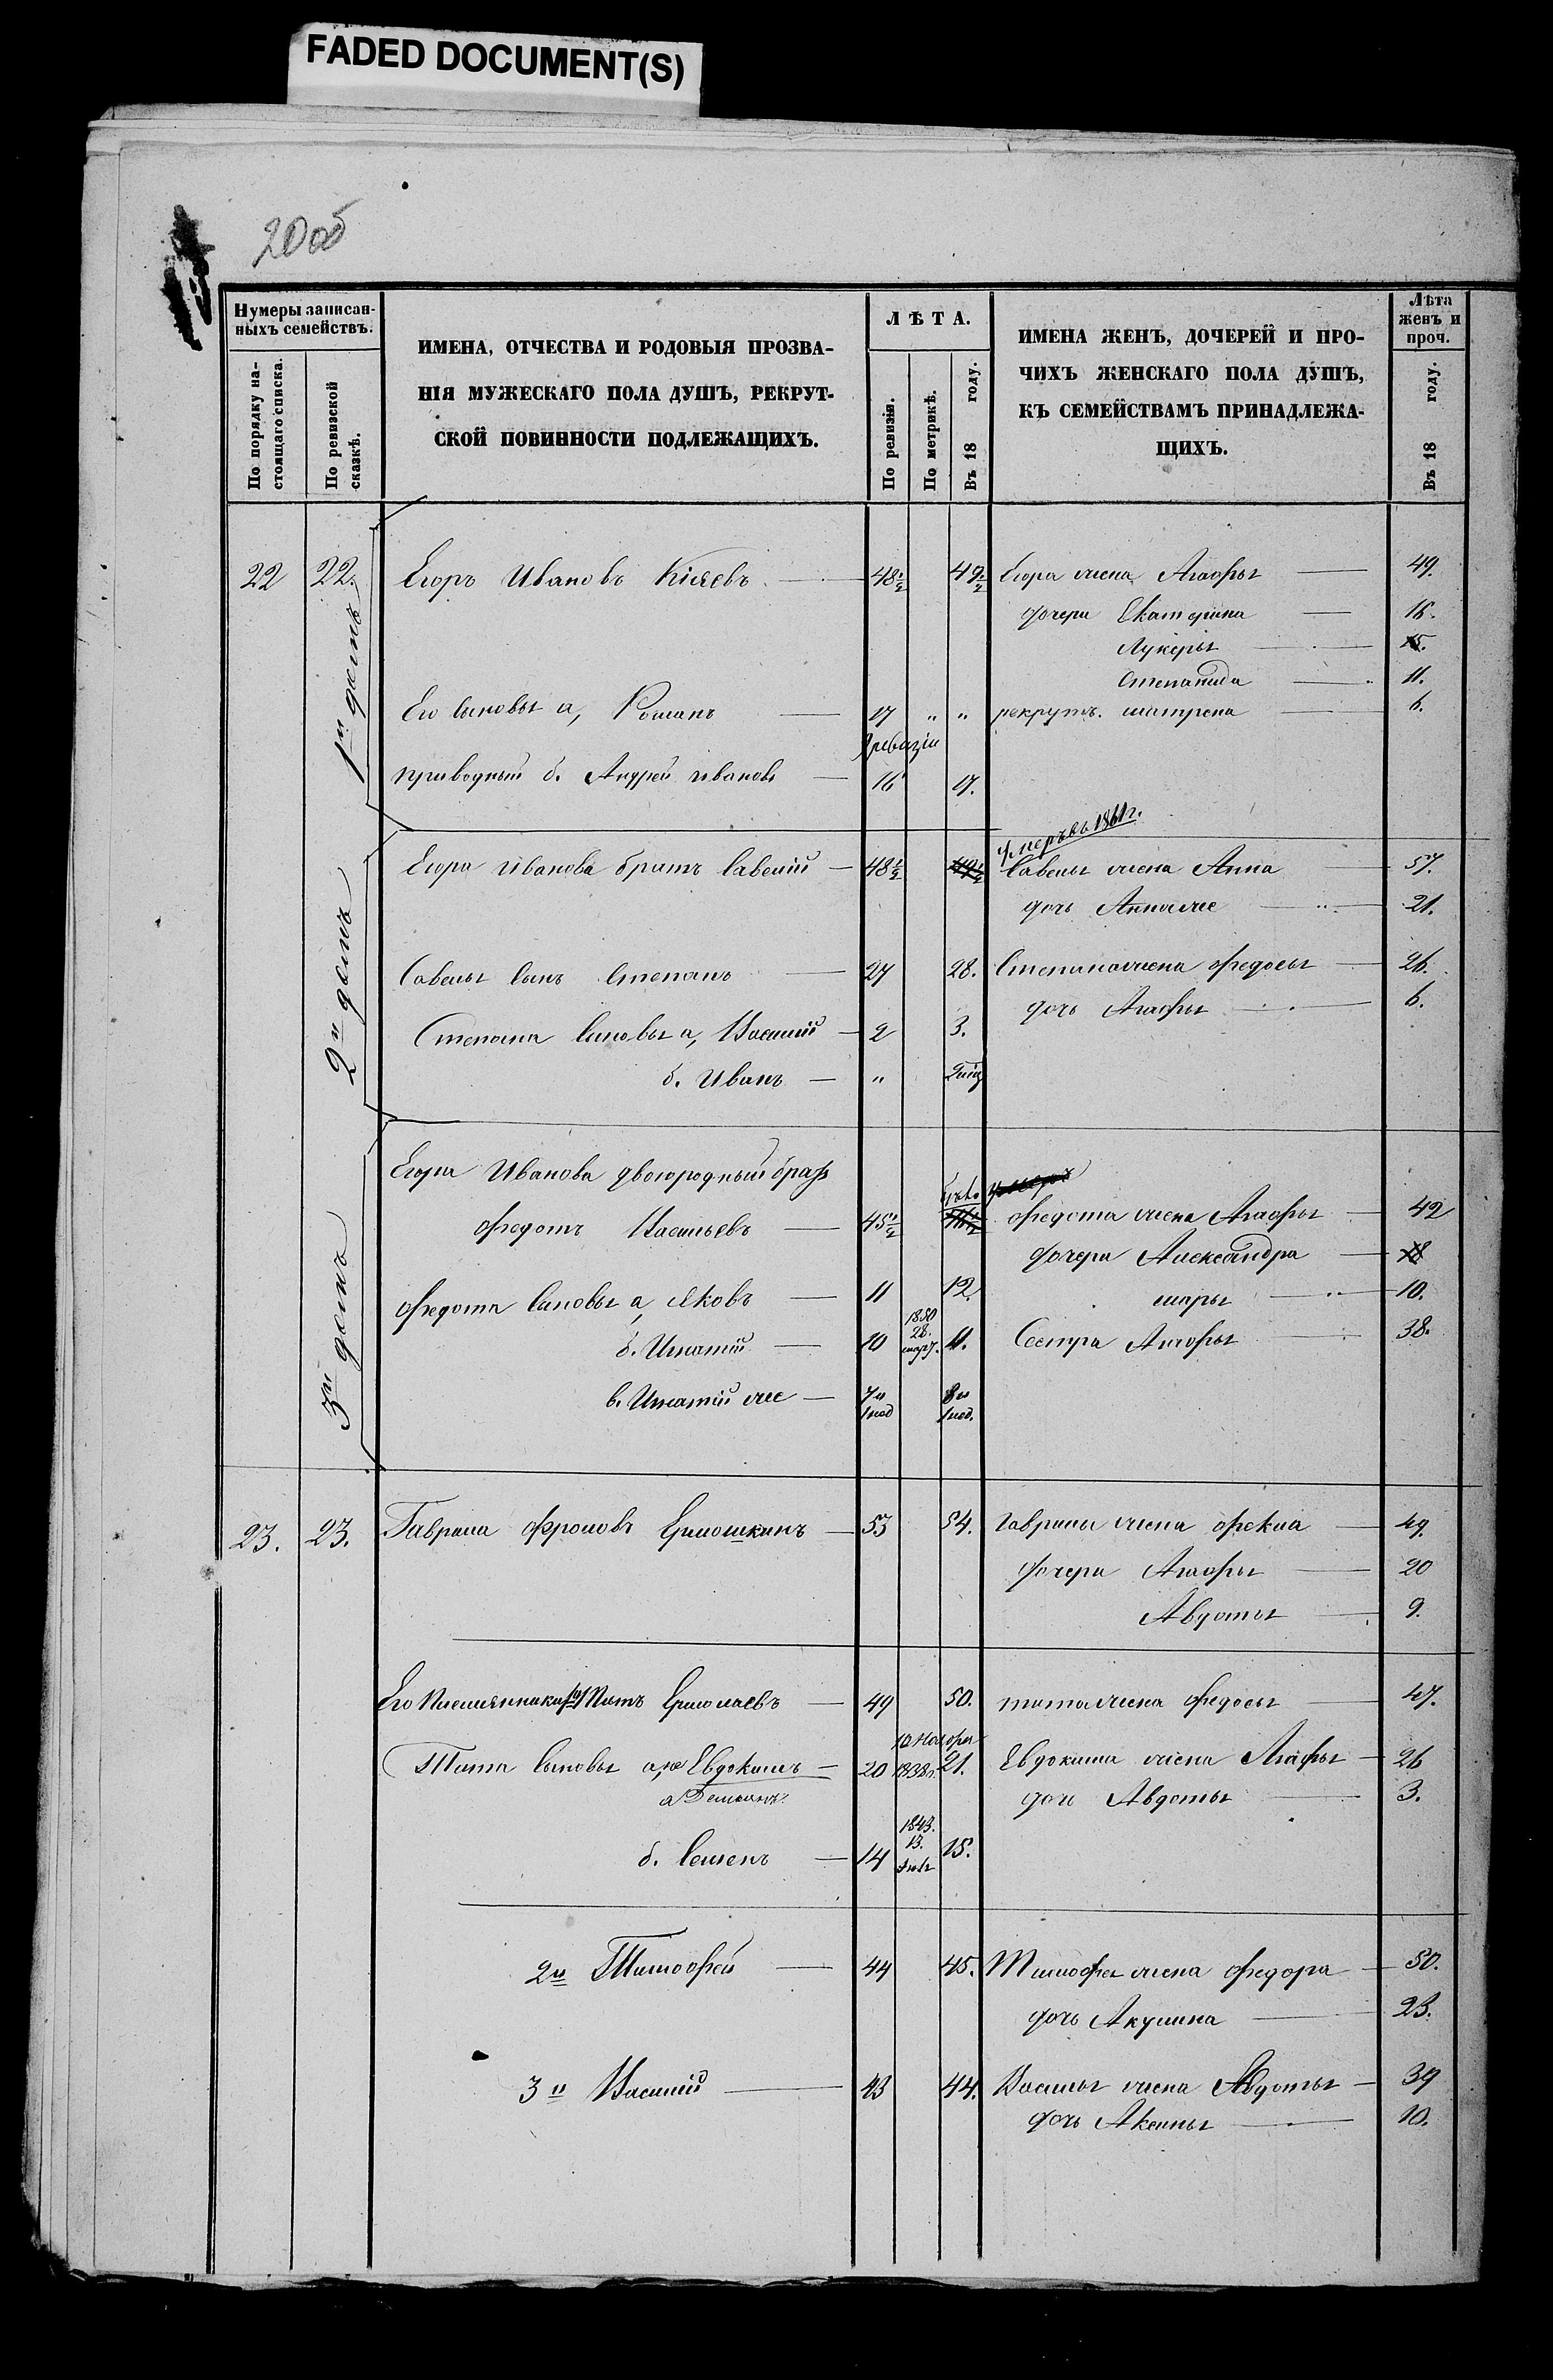 FADED DOCUMENT(S)
20 об
Нумеры записан-
ныхъ семействъ.
По порядку на-
стоящаго списка.
По ревизской
сказкѣ.
ИМЕНА, ОТЧЕСТВА И РОДОВЫЯ ПРОЗВА-
НІЯ МУЖЕСКАГО ПОЛА ДУШЪ, РЕКРУТ-
СКОЙ ПОВИННОСТИ ПОДЛЕЖАЩИХЪ.
ЛѢТА.
По ревизіи.
По метрикѣ.
Въ 18 году.
ИМЕНА ЖЕНЪ, ДОЧЕРЕЙ И ПРО-
ЧИХЪ ЖЕНСКАГО ПОЛА ДУШЪ,
КЪ СЕМЕЙСТВАМЪ ПРИНАДЛЕЖА-
ЩИХЪ.
Лѣта
женъ и
проч.
Въ 18 году.
1й домъ
22 22. Егоръ Ивановъ 48½ 49½ Егора жена Агафья 49.
дочери Екатерина 16.
Лукерья 15.
Степанида 11.
Его сыновья а, Романъ 17 " " рекрутъ. Матрена 6.
приводный б. Андрей Ивановъ 16 17.
2й домъ
умеръ въ 1861 г.
Егора Иванова братъ Савелій 48½ 49½ Савелья жена Анна 57.
дочь Анна же 21.
Савелья сынъ Степанъ 27 28. Степана жена Федосья 26.
дочь Агафья 6.
Степана сыновья а, Василій 2 3.
б. Иванъ "
3й домъ
Егора Иванова двоюродный братъ
умеръ
Федотъ Васильевъ 45½ 46½ Федота жена Агафья 42
дочери Александра 18
Федота сыновья а, Яковъ 11 12. Марья 10.
б. Игнатій 10 1850 28. март. 11. Сестра Агафья 38.
в. Игнатій же 7 и 8 и
23. 23. Гаврила Фроловъ Ермошкинъ 53 54. Гаврилы жена Фекла 49.
дочери Агафья 20
Авдотья 9.
Его племянники 1й Титъ Ермолаевъ 49 50. Тита жена Федосья 47.
Тита сыновья а, Евдокимъ 20 1838 г. 21. Евдокима жена Агафья 26
а Демьянъ дочь Авдотья 3.
б. Семенъ 14 1843. 13. 15.
2й Тимофей 44 45. Тимофея жена Федора 50.
дочь Акулина 23.
3й Василій 43 44. Василья жена Авдотья 39
дочь Аксинья 10.